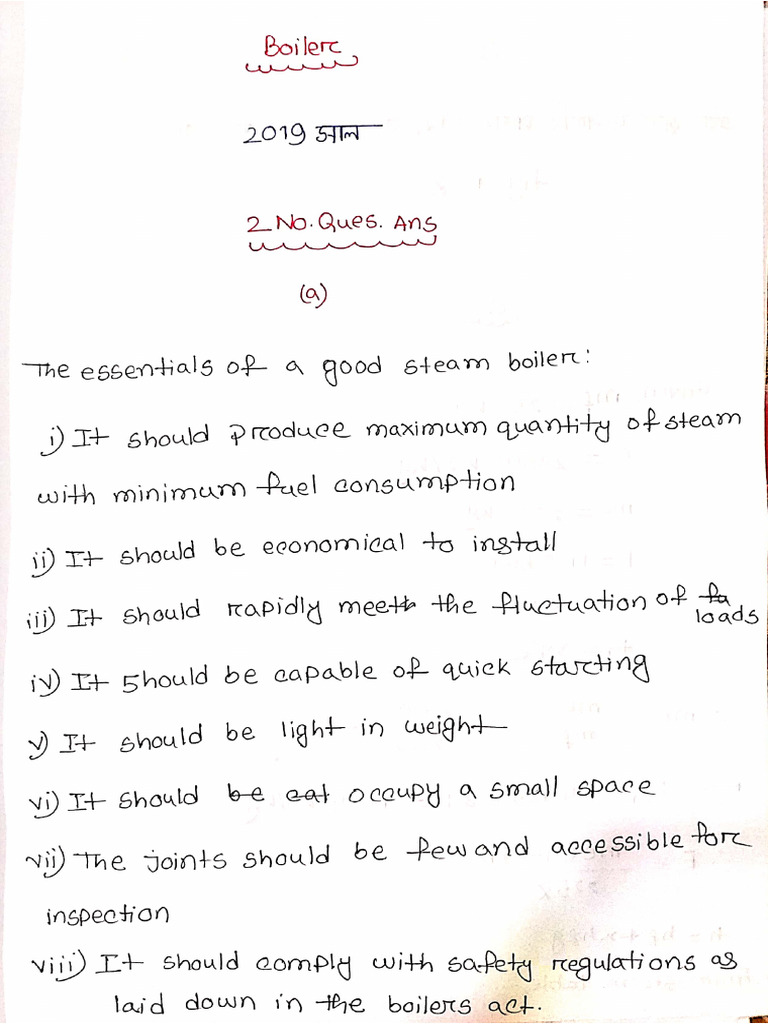 Boiler
2019 साल
2 No. Ques. Ans
(a)
The essentials of a good steam boiler:
i) It should produce maximum quantity of steam
with minimum fuel consumption
ii) It should be economical to install
iii) It should rapidly meet the fluctuation of
loads
iv) It should be capable of quick starting
v) It should be light in weight
vi) It should be eat occupy a small space
vii) The joints should be few and accessible for
inspection
viii) It should comply with safety regulations as
laid down in the boilers act.